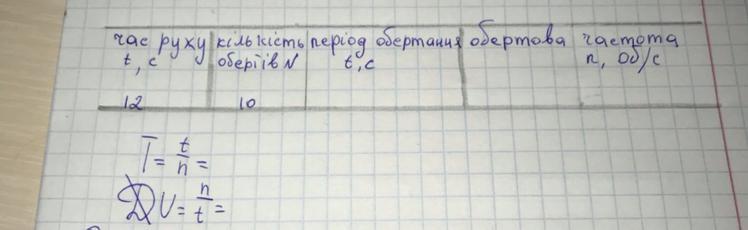 час руху кількість період обертання обертова частота
t, с обертів N t, с n, Об/с
12 10
T = t/n =
υ = n/t =